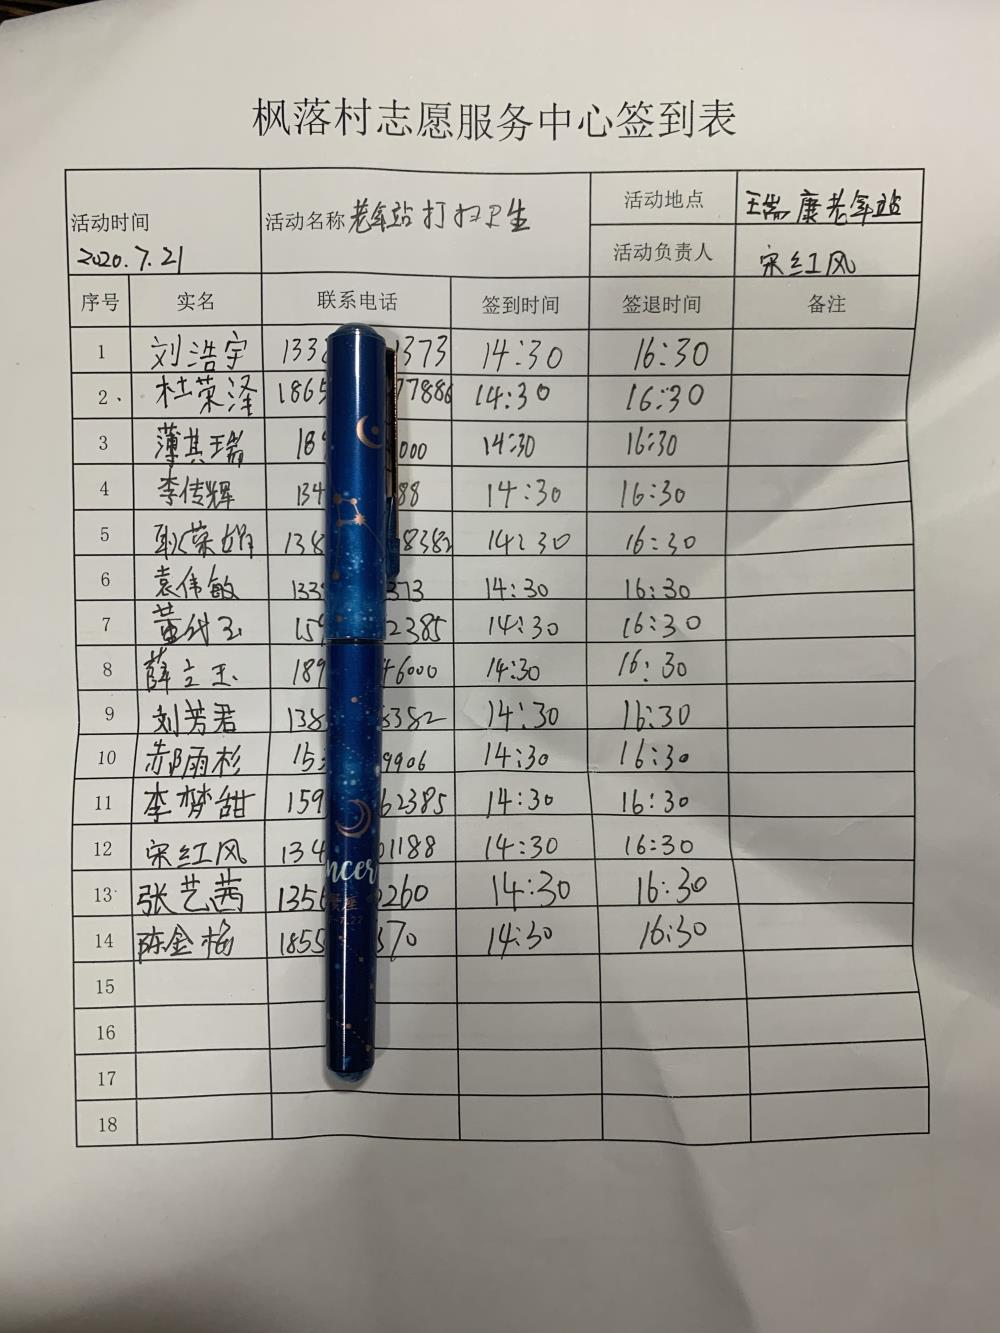 枫落村志愿服务中心签到表
活动时间
2020.7.21
活动名称 老年站打扫卫生
活动地点 瑞康老年站
活动负责人 宋红风
序号 实名 联系电话 签到时间 签退时间 备注
1 刘浩宇 133 1373 14:30 16:30
2、 杜荣泽 1865 77886 14:30 16:30
3 薄其瑞 189 000 14:30 16:30
4 李传辉 134 88 14:30 16:30
5 耿荣娟 138 8382 14:30 16:30
6 袁伟敏 133 373 14:30 16:30
7 黄代玉 159 2385 14:30 16:30
8 薛立玉 189 46000 14:30 16:30
9 刘芳君 138 8382 14:30 16:30
10 郝雨杉 153 9906 14:30 16:30
11 李梦甜 159 62385 14:30 16:30
12 宋红风 134 01188 14:30 16:30
13 张艺茜 1356 260 14:30 16:30
14 陈金梅 1855 370 14:30 16:30
15
16
17
18
ncer
座
7.22